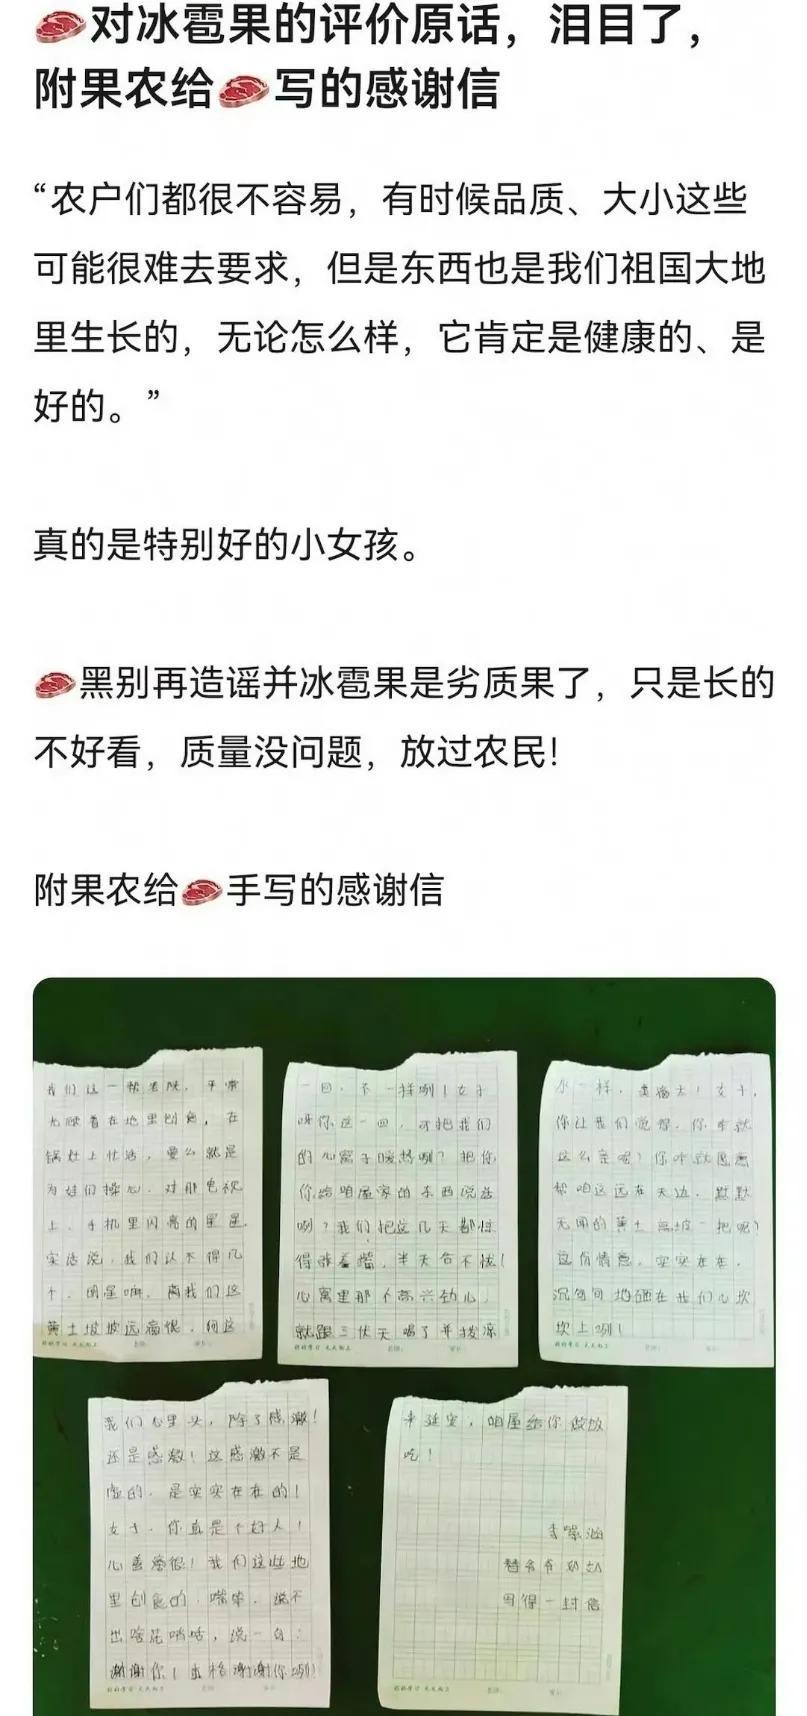 🥩对冰雹果的评价原话，泪目了，
附果农给🥩写的感谢信
“农户们都很不容易，有时候品质、大小这些
可能很难去要求，但是东西也是我们祖国大地
里生长的，无论怎么样，它肯定是健康的、是
好的。”
真的是特别好的小女孩。
🥩黑别再造谣并冰雹果是劣质果了，只是长的
不好看，质量没问题，放过农民！
附果农给🥩手写的感谢信
我们这一帮老陕，平常
尢顾着在地里刨食，在
锅灶上忙活，要么就是
为娃们操心，对那电视
上、手机里闪亮的星星，
实话说，我们认不得几
个。明星嘛，离我们这
黄土坡坡远滴很，何这
好好学习 天天向上
一回，不一样咧！女子
呀你这一回，可把我们
的心窝子暖热咧？把你
你给咱屋家的东西说益
咧？我们把这几天都惊
得张着嘴，半天合不拢！
心窝里那个高兴劲儿，
就跟三伏天喝了井拨凉
好好学习 天天向上
水一样，美滴太！女子，
你让我们觉得，你咋就
这么亲呢？你咋就愿意
帮咱这远在天边、默默
无闻的黄土疙坡一把呢？
这份情意，实实在在，
沉甸甸地砸在我们心坎
坎上咧！
我们心里头，除了感激！
还是感激！这感激不是
虚的，是实实在在的！
女子，你真是个好人！
心善滴很！我们这些地
里刨食的，嘴笨，说不
出啥花哨话，说一句：
谢谢你！出格谢谢你咧！
好好学习 天天向上
来延安，咱屋给你做饭
吃！
替爷爷奶奶
写得一封信
好好学习 天天向上